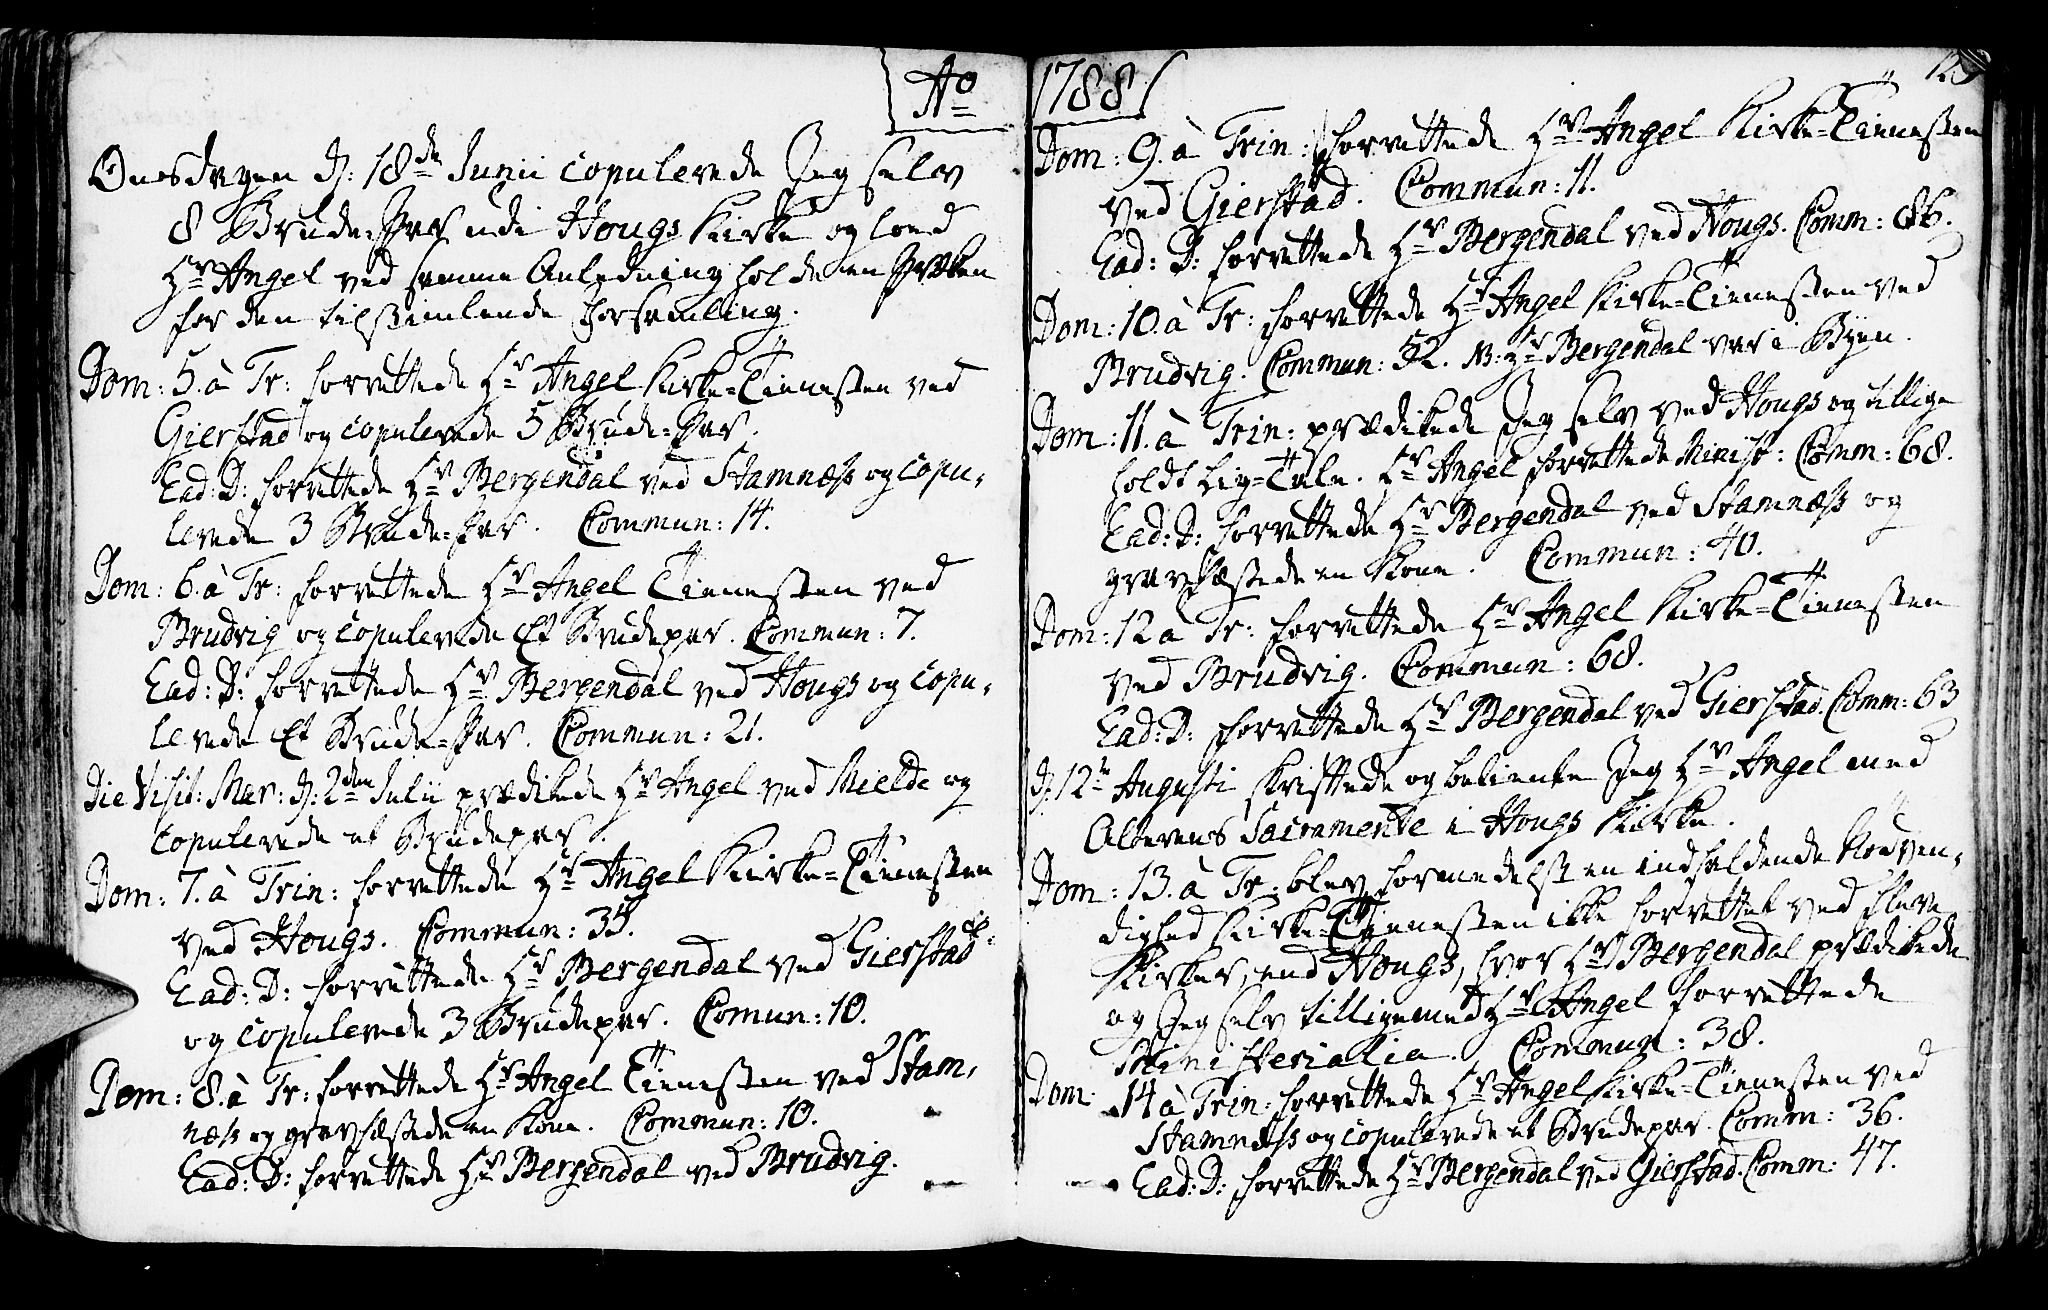 Ao
Onsdagen d: 18de Junii copulerede Jeg selv
8 Brude-Par udi Hougs Kirke og loed
Hr Angel ved samme Anledning holde en Præken
for den tilstimlende Forsamling.
Dom: 5. à Tr: forrettede Hr Angel Kirke-Tienesten ved
Gierstad og copulerede 5 Brude-Par.
Ead: D: forrettede Hr Bergendal ved Stamnæss og copu-
lerede 3 Brude-Par. Commun: 14.
Dom: 6. à Tr: forrettede Hr Angel Tienesten ved
Brudvig og copulerede Et Brudepar. Commun: 7.
Ead: D: forrettede Hr Bergendal ved Hougs og copu-
lerede Et Brude-Par. Commun: 21.
Die Visit: Mar: d: 2den Julii prædikede Hr Angel ved Mielde og
copulerede et Brudepar.
Dom: 7. à Trin: forrettede Hr Angel Kirke-Tienesten
ved Hougs. Commun: 35.
Ead: D: forrettede Hr Bergendal ved Gierstad
og copulerede 3 Brudepar. Comun: 10.
Dom: 8. à Tr: forrettede Hr Angel Tienesten ved Stam-
næss og gravfæstede en Kone. Commun: 10.
Ead: D: forrettede Hr Bergendal ved Brudvig.
1788
Dom: 9. à Trin: forrettede Hr Angel Kirke-Tienesten
ved Gierstad. Commun: 11.
Ead: D: forrettede Hr Bergendal ved Hougs. Comm: 86.
Dom: 10. à Tr: forrettede Hr Angel Kirke-Tienesten ved
Brudvig. Commun: 52. NB: Hr Bergendal var i Byen.
Dom: 11. à Trin: prædikede Jeg selv ved Hougs og tillige
holdt Lig-Tale. Hr Angel forrettede Minist: Comm: 68.
Ead: D: forrettede Hr Bergendal ved Stamnæss og
gravfæstede en Kone. Commun: 40.
Dom: 12 à Tr: forrettede Hr Angel Kirke-Tienesten
ved Brudvig. Commun: 68.
Ead: D: forrettede Hr Bergendal ved Gierstad. Comm: 63
d: 12te Augusti skriftede og betiente Jeg Hr Angel med
Alterens Sacramente i Hougs Kirke.
Dom: 13. à Tr: blev formedelst en indfaldende Nødven-
dighed Kirke-Tienesten ikke forrettet ved fleere
Kirker, end Hougs, hvor Hr Bergendal prædikede
og Jeg selv tilligemed Hr Angel forrettede
Ministerialia. Commun: 38.
Dom: 14 à Trin: forrettede Hr Angel Kirke-Tienesten ved
Stamnæss og copulerede et Brudepar. Comm: 36.
Ead: D: forrettede Hr Bergendal ved Gierstad. Comm: 47.